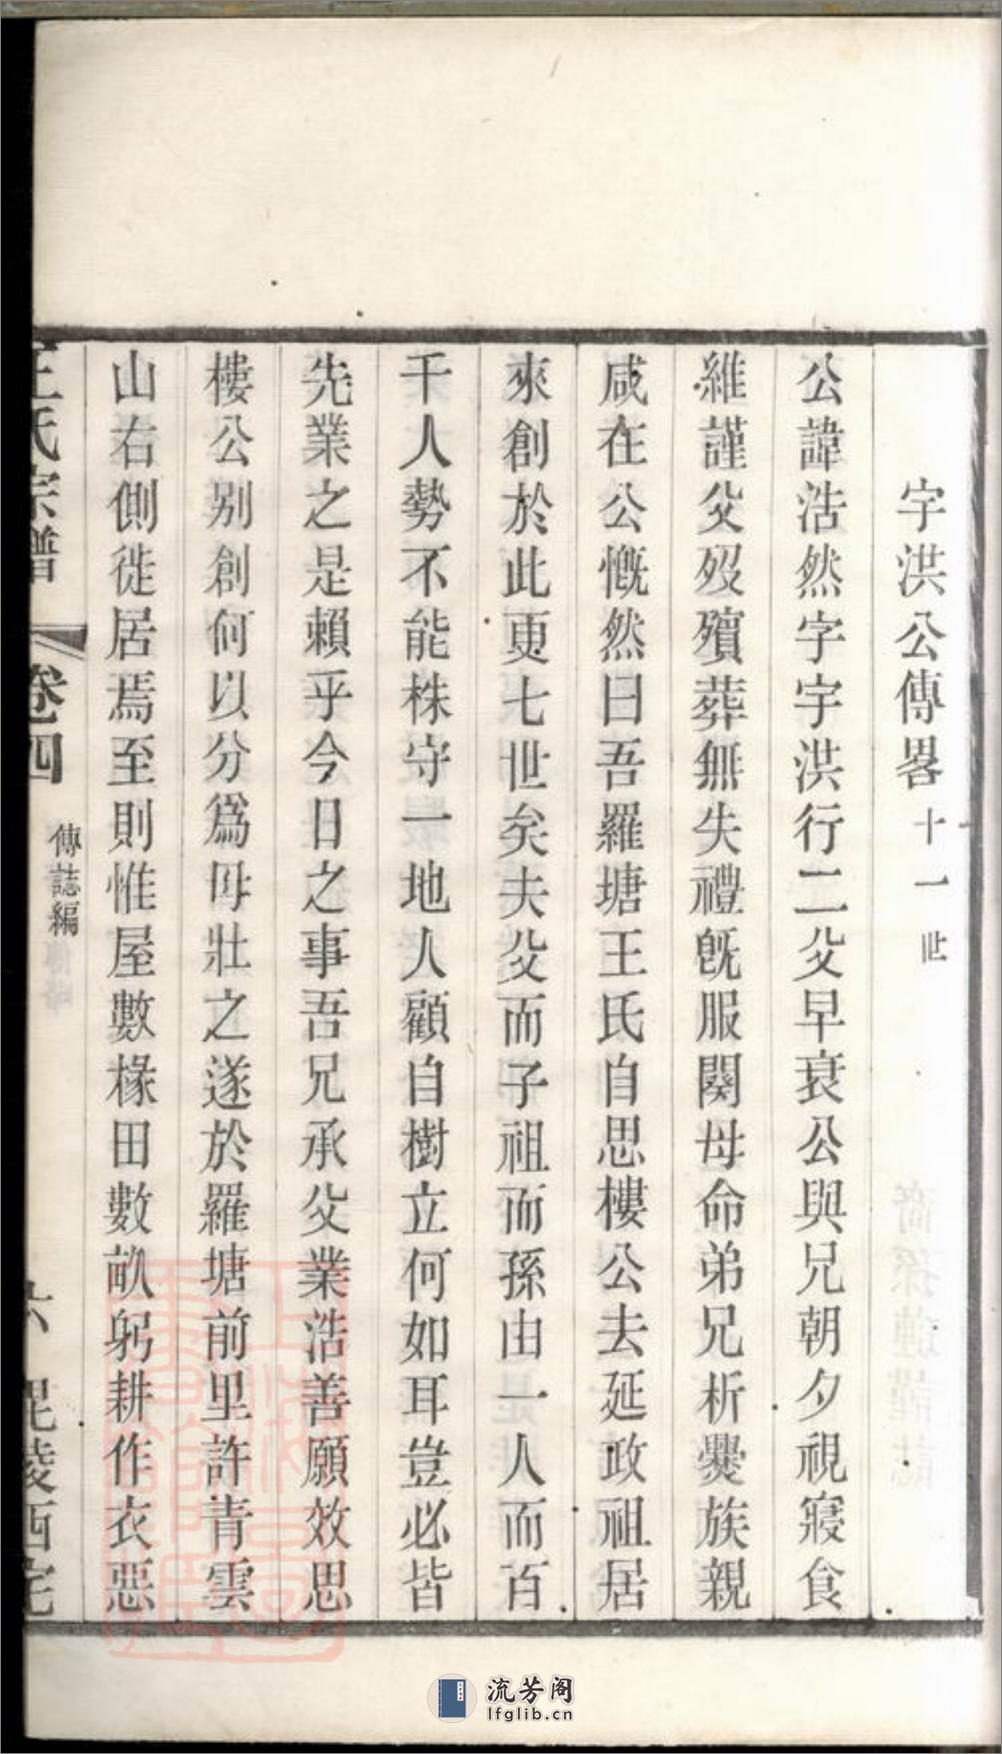 宇洪公傳畧十一世
公諱浩然字宇洪行二父早衰公與兄朝夕視寢食
維謹父歿殯葬無失禮旣服闋母命弟兄析爨族親
咸在公慨然曰吾羅塘王氏自思樓公去延政祖居
來創於此更七世矣夫父而子祖而孫由一人而百
千人勢不能株守一地人顧自樹立何如耳豈必皆
先業之是賴乎今日之事吾兄承父業浩善願效思
樓公别創何以分爲毋壯之遂於羅塘前里許青雲
山右側徙居焉至則惟屋數椽田數畝躬耕作衣惡
王氏宗譜 卷四 傳誌編 六 毘陵西宅
流芳阁
lfglib.cn